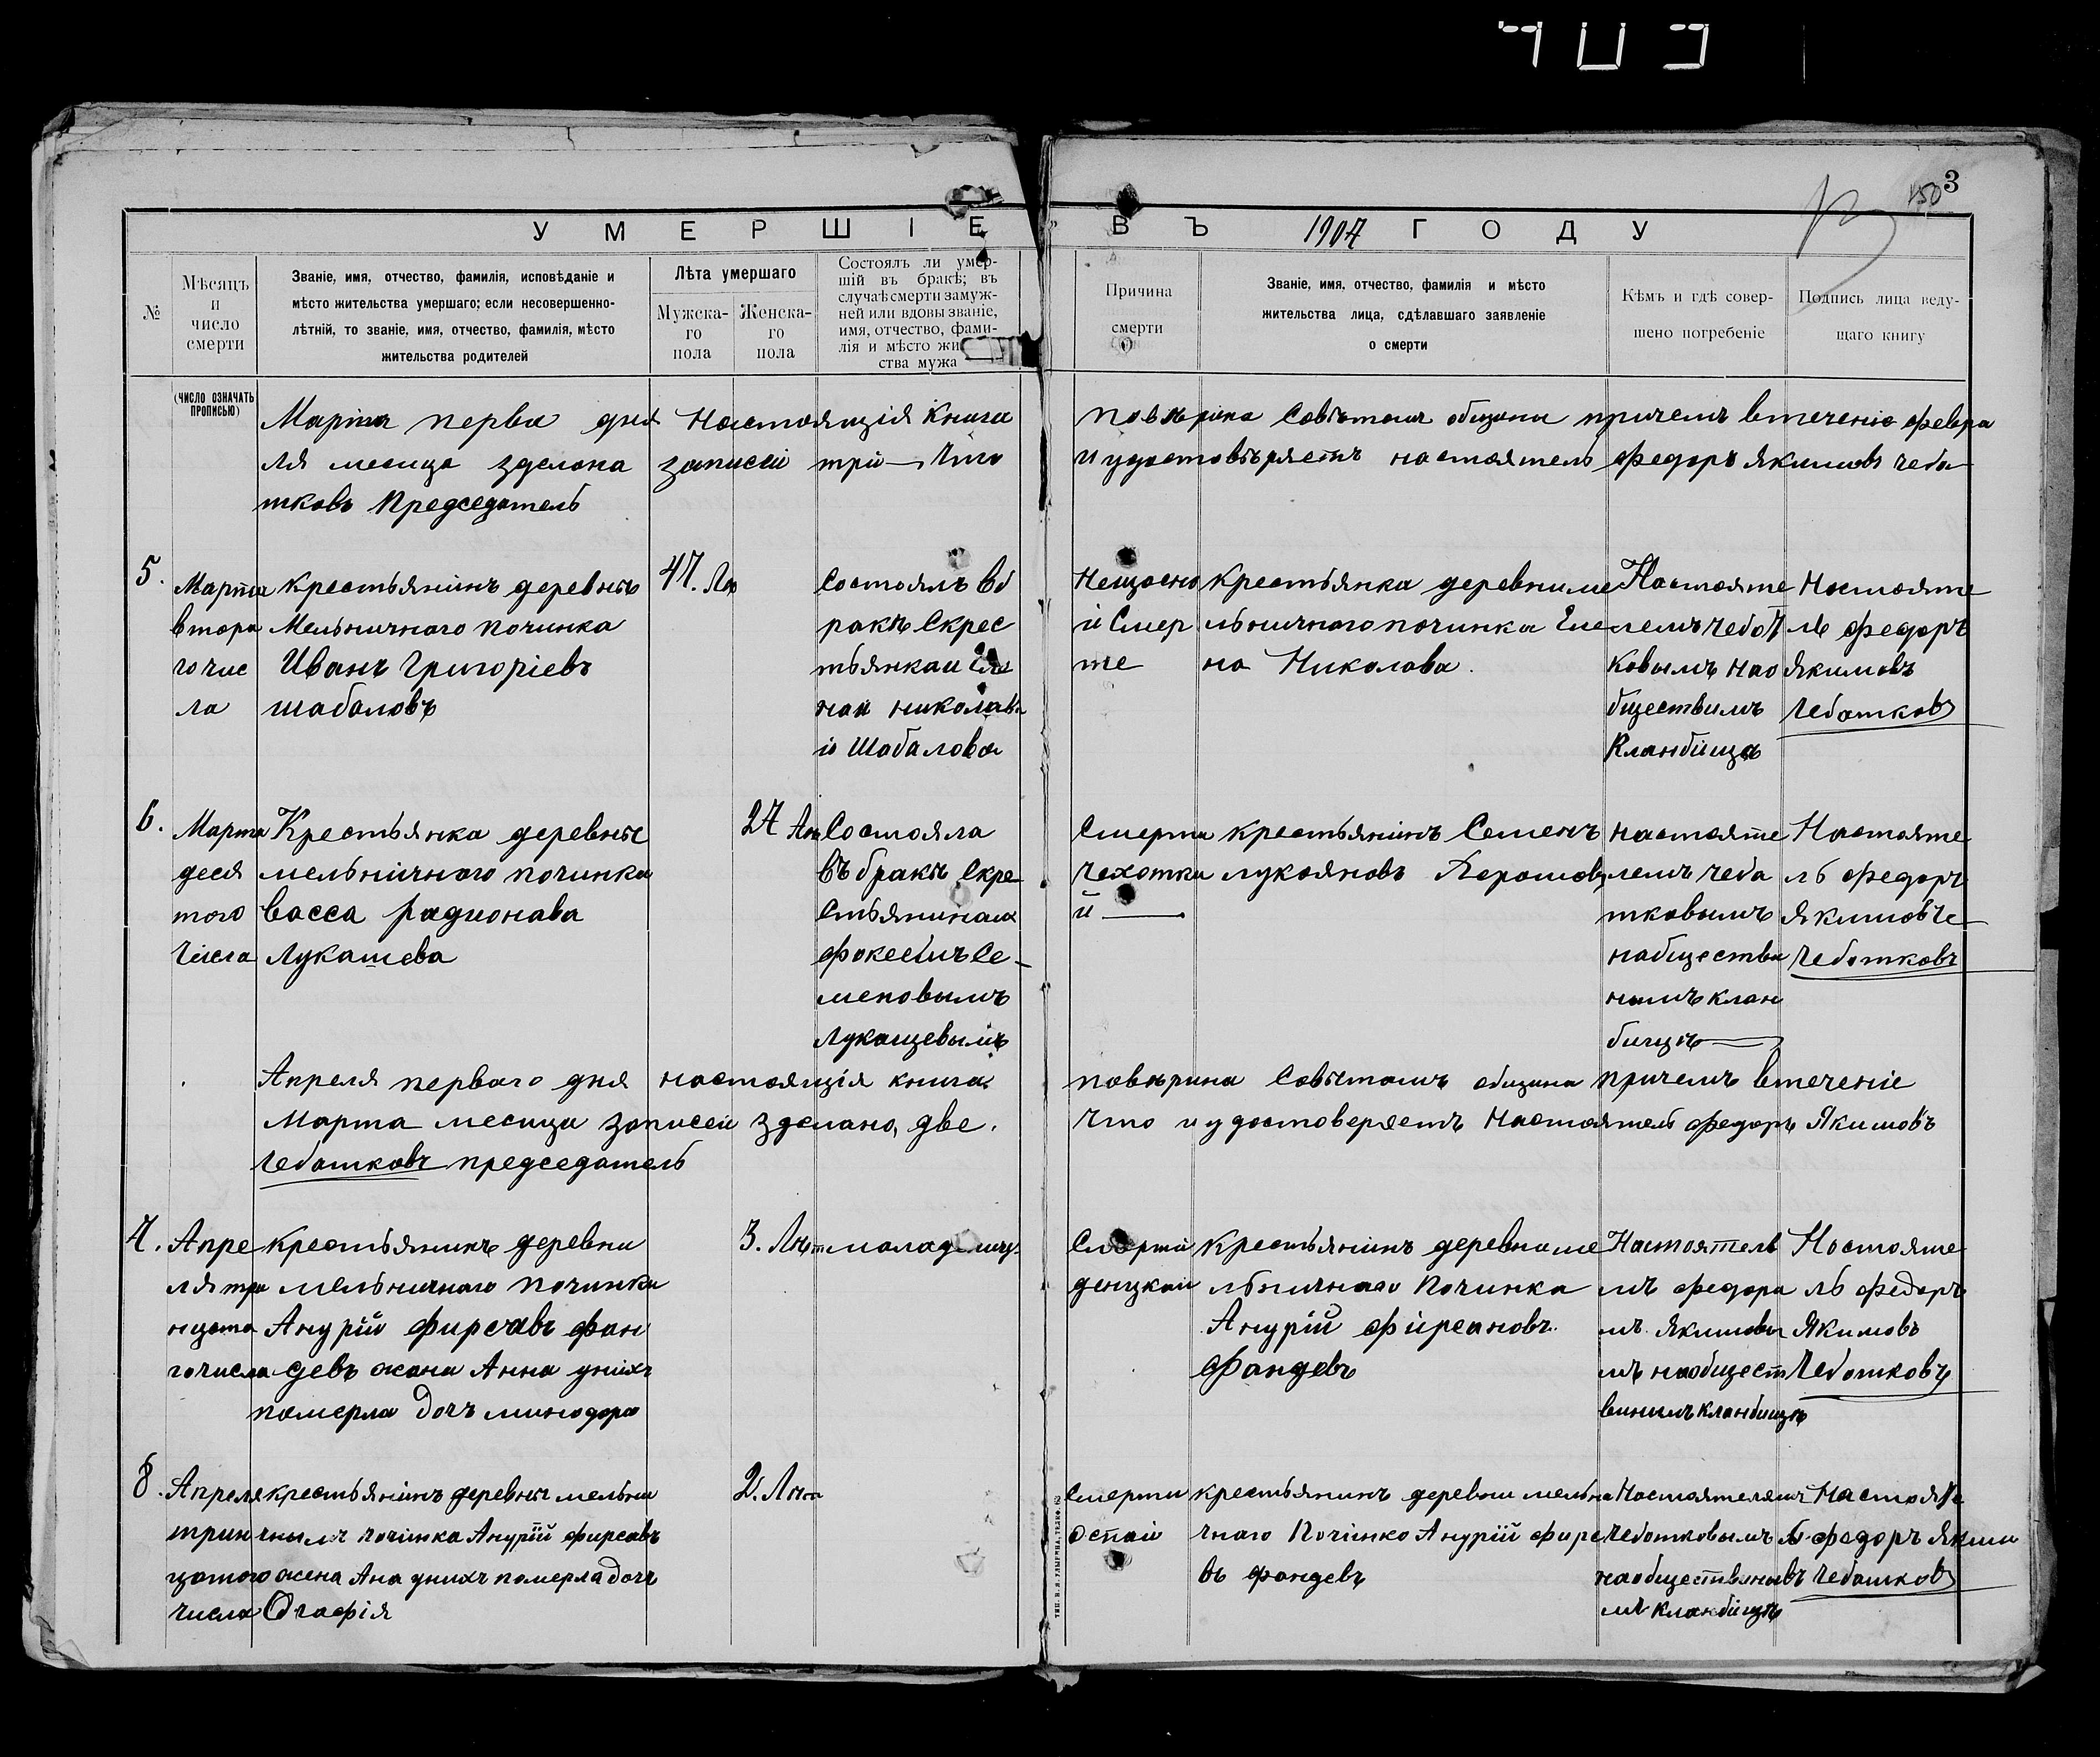 150 3
УМЕРШІЕ ВЪ 1907 ГОДУ
№
Мѣсяцъ
и
число
смерти
Званіе, имя, отчество, фамилія, исповѣданіе и
мѣсто жительства умершаго; если несовершенно-
лѣтній, то званіе, имя, отчество, фамилія, мѣсто
жительства родителей
Лѣта умершаго
Мужска-
го
пола
Женска-
го
пола
Состоялъ ли умер-
шій въ бракѣ; въ
случаѣ смерти замуж-
ней или вдовы званіе,
имя, отчество, фами-
лія и мѣсто жи
ства мужа
Причина
смерти
Званіе, имя, отчество, фамилія и мѣсто
жительства лица, сдѣлавшаго заявленіе
о смерти
Кѣмъ и гдѣ совер-
шено погребеніе
Подпись лица веду-
щаго книгу
(ЧИСЛО ОЗНАЧАТЬ
ПРОПИСЬЮ)
Марта перва дня Настоящія Книга повѣрина Совѣтомъ общины причемъ втеченіе февра
ля месица зделона записей три — Что и удостовѣряетъ настоятель федоръ якимовъ чеба
тковъ Председатель
5.
Марта
второ
го чис
ла
крестьянинъ деревны
Мельничнаго починка
Иванъ Григоріевъ
шабаловъ
47.
Состоялъ вб
ракѣ Скрес
тьянкаи Еле
най николав
й Шабалова
Нещасно
й Смер
те
Крестьянка деревниме
льничнаго починка Еле
на Николава.
Настояте
лемъ чебот
ковымъ нао
бществимъ
Кланбища
Настояте
ль федоръ
Якимовъ
Чеботковъ
6.
Марта
деся
того
числа
Крестьянка деревны
мельничнаго починка
васса радионава
Лукашева
27
Состояла
въ бракѣ Скре-
стьянинам
фокеемъ Се-
меновымъ
Лукашевымъ
Смерти
чехотки
й —
крестьянинъ Семенъ
лукояновъ
настояте
лемъ чеба
тковымъ
набществи
нымъ клан
бищѣ —
Настояте
ль федоръ
Якимовъ
Чеботковъ
Апреля перваго дня настоящія книга повѣрина Совѣтомъ общины причемъ втеченіе
Марта месица записей зделано, две. Что и удостоверяетъ Настоятель федоръ Якимовъ
Чебатковъ председатель
7.
Апре
ля три
нцата
го числа
крестьянинъ деревни
мельничнаго починка
Анурій Фирсавъ фан
девъ жона Анна унихъ
померла дочъ минодора
3. Лѣт
Смерти
Крестьянинъ деревниме
льничнаго Починка
Анурій Фирсановъ
Фандевъ
Настоятель
мъ федора
мъ Якимовы
мъ наобщест
винимъ кланбищѣ
Настояте
ль федоръ
Якимовъ
Чеботковъ
8.
Апреля
трин
цатого
числа
крестьянинъ деревны мельни
чнымъ почінка Анурій фирсавъ
жена Ана унихъ померла дочъ
Огафія
2. Лѣт
Смерти
оспай
крестьянинъ деревни мельни
чнаго Почінко Анурій фирса
въ фандевъ
Настоятелямъ
Чеботковымъ
наобщественны
мъ кланбищѣ
Настояте
ль федоръ Яким
въ Чебатковъ